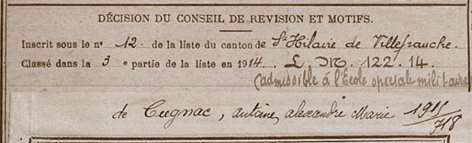 DÉCISION DU CONSEIL DE REVISION ET MOTIFS.
Inscrit sous le nº 12 de la liste du canton de St Hilaire de Villefranche.
Classé dans la 3e partie de la liste en 1914 L. M. 122. 14.
(admissible à l'Ecole spéciale militaire
de Cugnac, antoine, alexandre Marie 1911/718